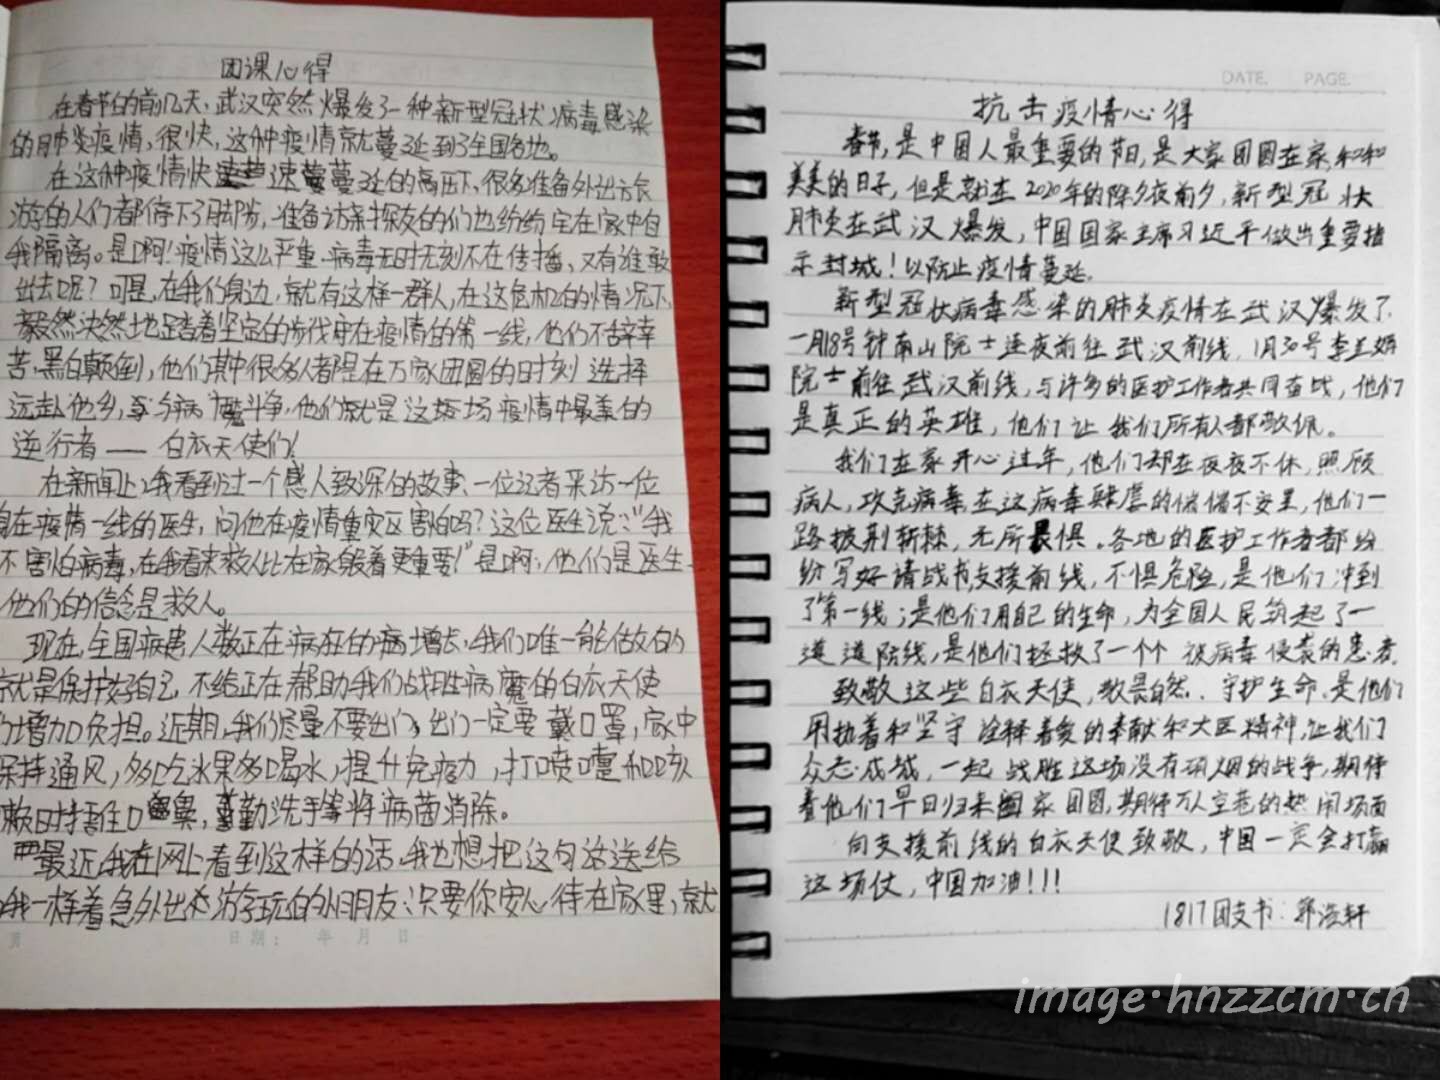 团课心得
在春节的前几天,武汉突然爆发了一种新型冠状病毒感染
的肺炎疫情,很快,这种疫情就蔓延到了全国各地。
在这种疫情快速蔓延的高压下,很多准备外出旅
游的人们都停下了脚步,准备访亲探友的们也纷纷宅在家中自
我隔离。是啊!疫情这么严重,病毒无时无刻不在传播,又有谁敢
出去呢?可是,在我们身边,就有这样一群人,在这危机的情况下,
毅然决然地踏着坚定的步伐守在疫情的第一线,他们不辞辛
苦,黑白颠倒,他们其中很多人都是在万家团圆的时刻选择
远赴他乡,与病魔斗争,他们就是这场疫情中最美的
逆行者——白衣天使们!
在新闻上,我看到过一个感人致深的故事、一位记者采访一位
身在疫情一线的医生,问他在疫情重灾区害怕吗?这位医生说:“我
不害怕病毒,在我看来救人比在家躲着更重要!”是啊,他们是医生,
他们的信念是救人。
现在,全国疾患人数正在病在的病增长,我们唯一能做的
就是保护好自己,不给正在帮助我们战胜病魔的白衣天使
们增加负担。近期,我们尽量不要出门,出门一定要戴口罩,家中
保持通风,多吃水果多喝水,提升免疫力,打喷嚏和咳
嗽时捂住口鼻,勤洗手等将病菌消除。
最近,我在网上看到这样的话,我也想把这句话送给
和我一样着急外出游玩的小朋友:只要你安心待在家里,就
页 日期: 年 月 日
DATE. PAGE.
抗击疫情心得
春节,是中国人最重要的节日,是大家团圆在家,和和
美美的日子,但是就在2020年的除夕夜前夕,新型冠状
肺炎在武汉爆发,中国国家主席习近平做出重要指
示封城!以防止疫情蔓延.
新型冠状病毒感染的肺炎疫情在武汉爆发了.
一月18号钟南山院士连夜前往武汉前线,1月30号李兰娟
院士前往武汉前线,与许多的医护工作者共同奋战,他们
是真正的英雄,他们让我们所有人都敬佩。
我们在家开心过年,他们却在夜夜不休,照顾
病人,攻克病毒,在这病毒肆虐的惴惴不安里,他们一
路披荆斩棘,无所畏惧。各地的医护工作者都纷
纷写好请战书,支援前线,不惧危险,是他们冲到
了第一线;是他们用自己的生命,为全国人民筑起了一
道道防线,是他们拯救了一个个被病毒侵袭的患者.
致敬这些白衣天使,敬畏自然、守护生命、是他们
用执着和坚守诠释着爱的奉献和大医精神,让我们
众志成城,一起战胜这场没有硝烟的战争,期待
着他们早日归来阖家团圆,期待万人空巷的热闹场面
向支援前线的白衣天使致敬,中国一定会打赢
这场仗,中国加油!!!
1817团支书:郭浩轩
image·hnzzcm·cn